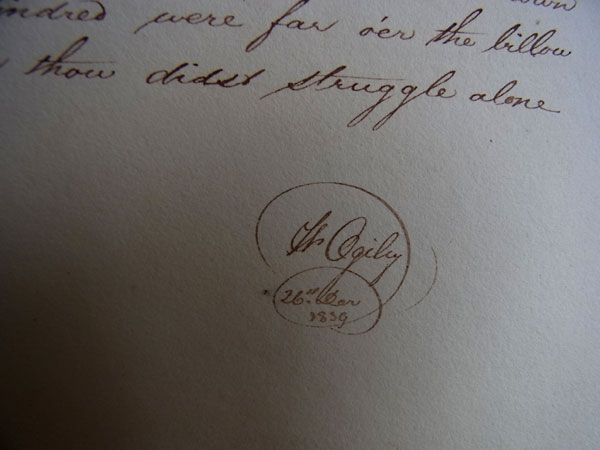 kindred were far o'er the billow
thou didst struggle alone
Ogilvy
26
1839